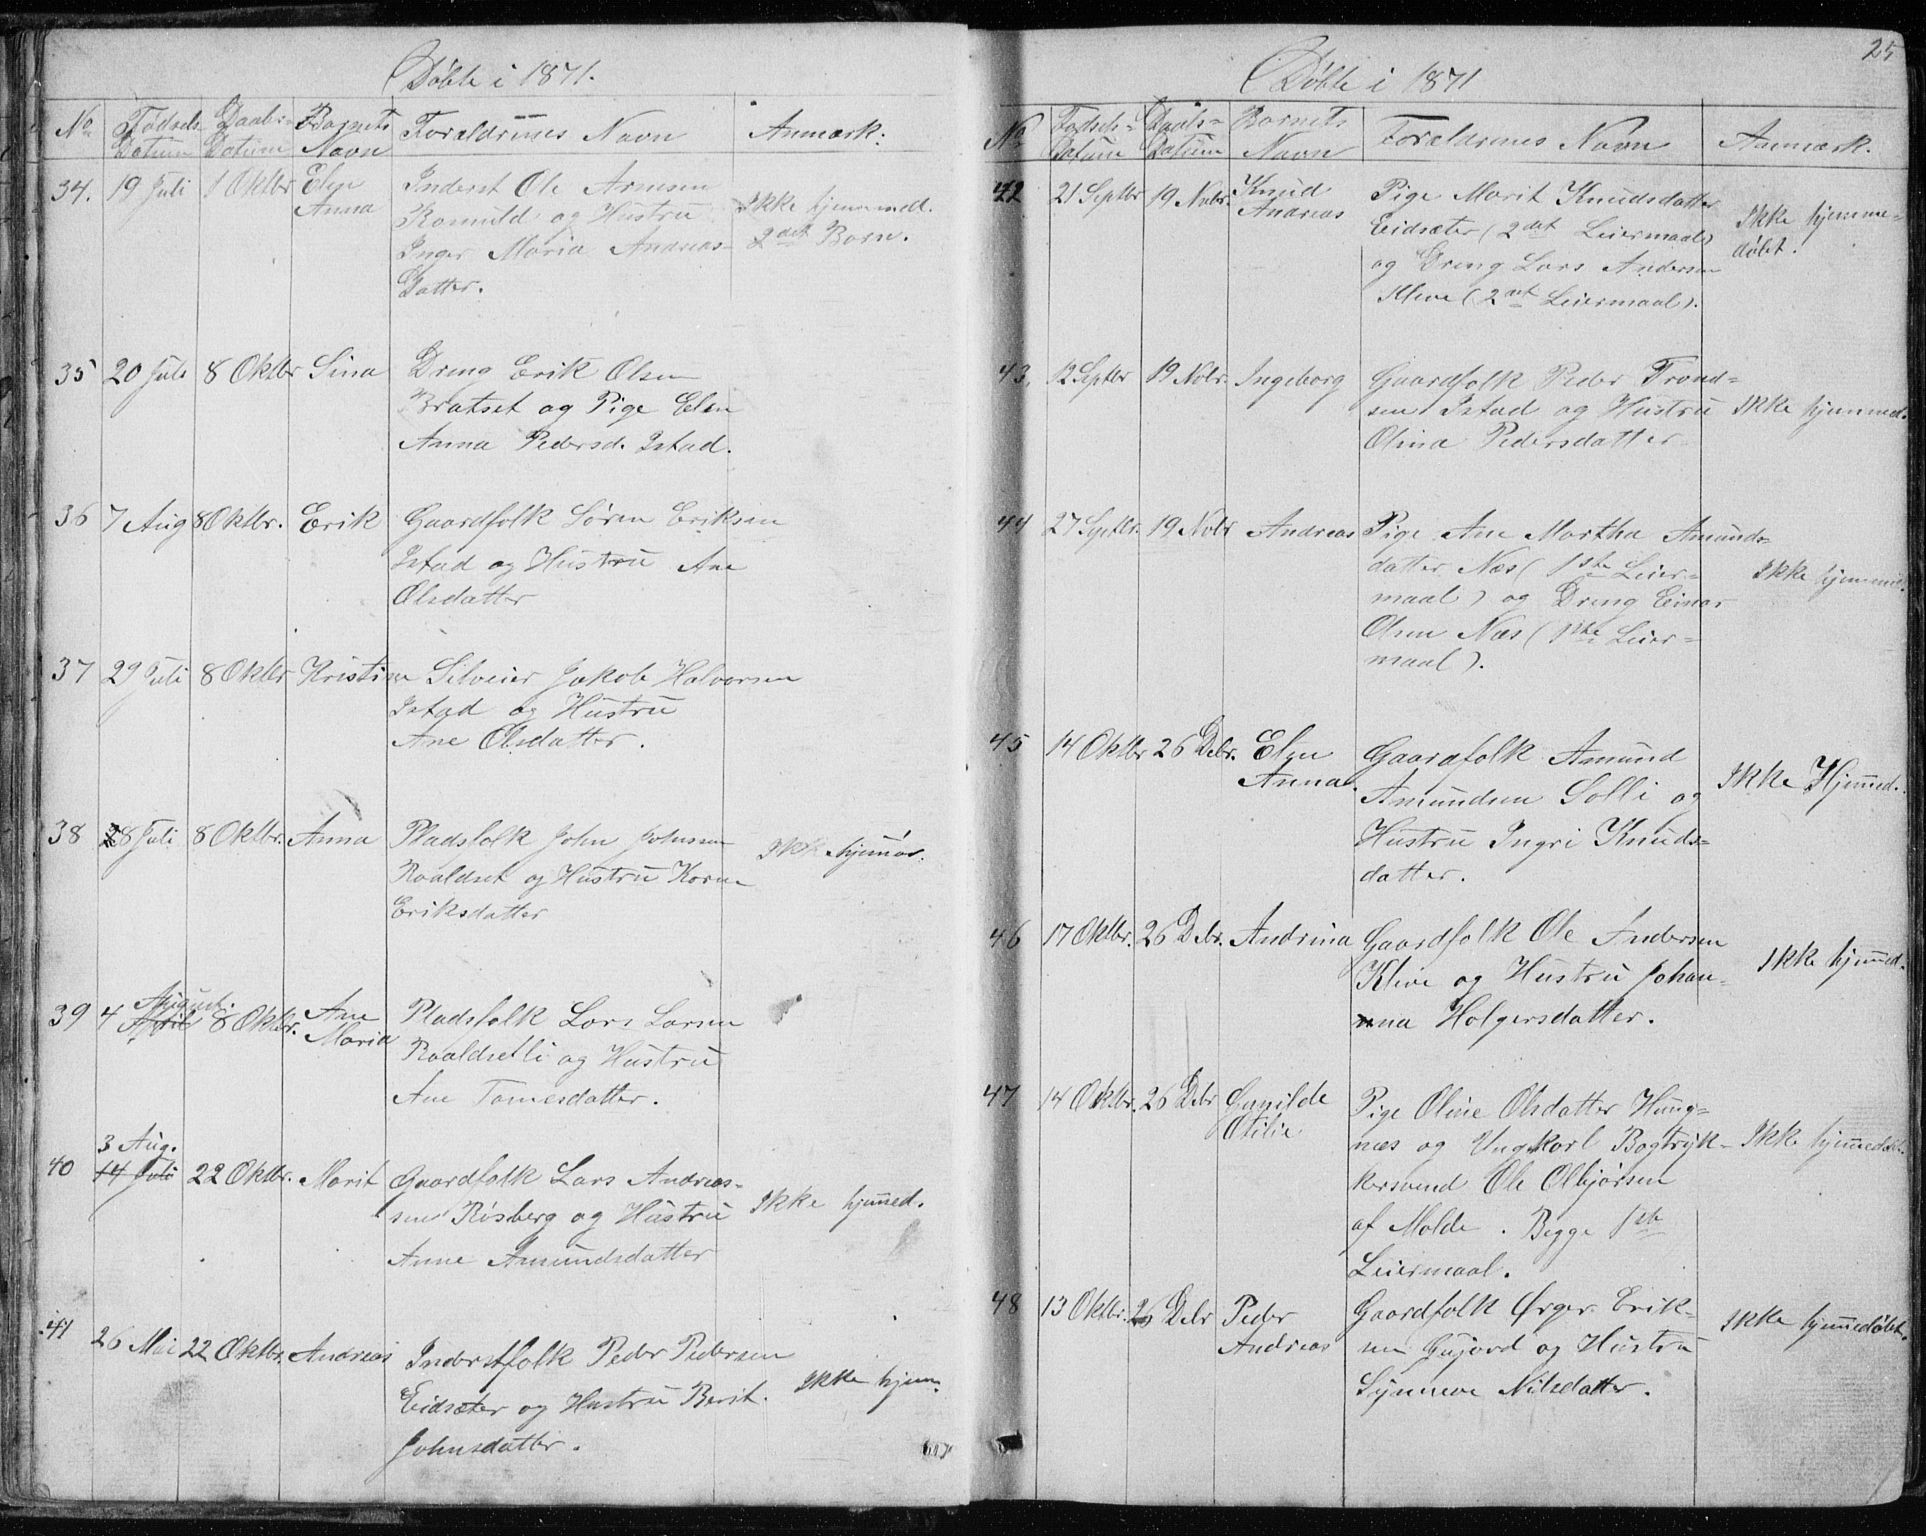 Døbte i 1871.
No Fødsels- Daabs- Barnets Forældrenes Navn Anmærk:
Datum Datum Navn
34. 19 Juli 1 Oktbr Elen Inderst Ole Arnesen
Anna Romuld og Hustru Ikke hjemmed.
Inger Maria Andreas- 2det Barn.
Datter.
35 20 Juli 8 Oktbr Sina Dreng Erik Olsen
Bratset og Pige Elen
Anna Pedersd. Istad.
36 7 Aug 8 Oktbr. Erik Gaardfolk Søren Eriksen
Istad og Hustru Ane
Olsdatter
37 29 Juli 8 Oktbr Kristine Selveier Jakob Halvorsen
Istad og Hustru
Ane Olsdatter.
38 28 Juli 8 Oktbr. Anna Pladsfolk John Johnsen
Roaldset og Hustru Karen Ikke hjemd.
Eriksdatter
August.
39 4 April 8 Oktbr. Ane Pladsfolk Lars Larsen
Maria Roaldsetli og Hustru
Ane Tomesdatter.
3 Aug.
40 14 Juli 22 Oktbr. Marit Gaardfolk Lars Andreas-
sen Risberg og Hustru Ikke hjemmed.
Anne Amundsdatter
41 26 Mai 22 Oktbr. Andreas Inderstfolk Peder Pedersen
Eidsæter og Hustru Berit Ikke hjem.
Johnsdatter.
25
Døbte i 1871
No Fødsels- Daabs- Barnets Forældrenes Navn Anmærk.
Datum Datum Navn
42 21 Septbr 19 Nvbr. Knud Pige Marit Knudsdatter
Andreas Eidsæter (2det Leiermaal) Ikke hjemme-
og Dreng Lars Andersen døbt.
Klive (2det Leiermaal).
43. 12 Septbr 19 Nvbr. Ingeborg Gaardfolk Peder Trond-
sen Istad og Hustru Ikke hjemmed.
Olina Pedersdatter
44 27 Septbr. 19 Nvbr Andreas Pige Ane Martha Amunds-
datter Næs (1ste Leier- Ikke hjemmed.
maal) og Dreng Einar
Olsen Næs (1ste Leier-
maal).
45 14 Oktbr 26 Debr. Elen Gaardfolk Amund
Anna. Amundsen Solli og Ikke Hjemmed.
Hustru Ingri Knuds-
datter.
46 17 Oktbr. 26 Debr. Andrina Gaardfolk Ole Andersen
Klive og Hustru Johan- Ikke hjemmed.
nna Holgersdatter.
47 14 Oktbr. 26 Debr Gunilde Pige Oline Olsdatter Hung-
Otilie næs og Ungkarl Bogtryk- Ikke hjemmedøbt.
kersvend Ole Olbjørsen
af Molde. Begge 1ste
Leiermaal.
48 13 Oktbr. 26 Debr Peder Gaardfolk Ørger Erik-
Andreas sen Gujord og Hustru Ikke hjemmedøbt.
Synneve Nilsdatter.